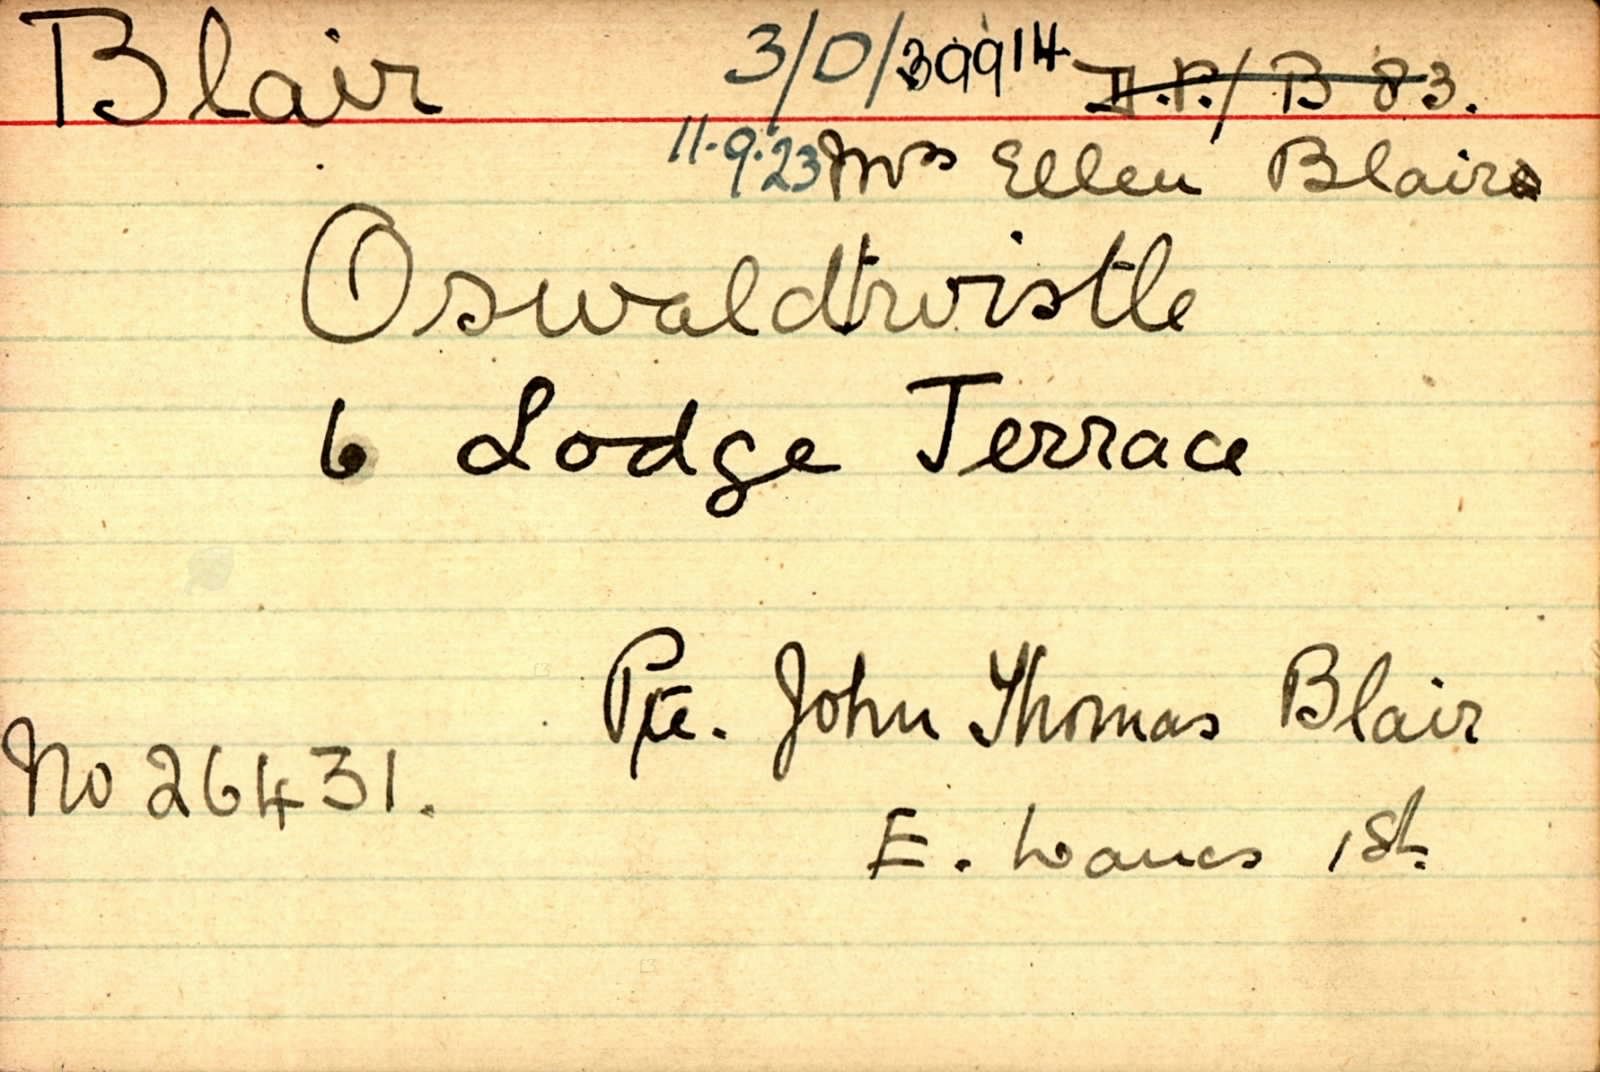 Blair 3/D/39914 D.P./B 83.
11.9.23 Mrs Ellen Blair
Oswaldtwistle
6 Lodge Terrace
Pte. John Thomas Blair
No 26431.
E. Lancs 1st.